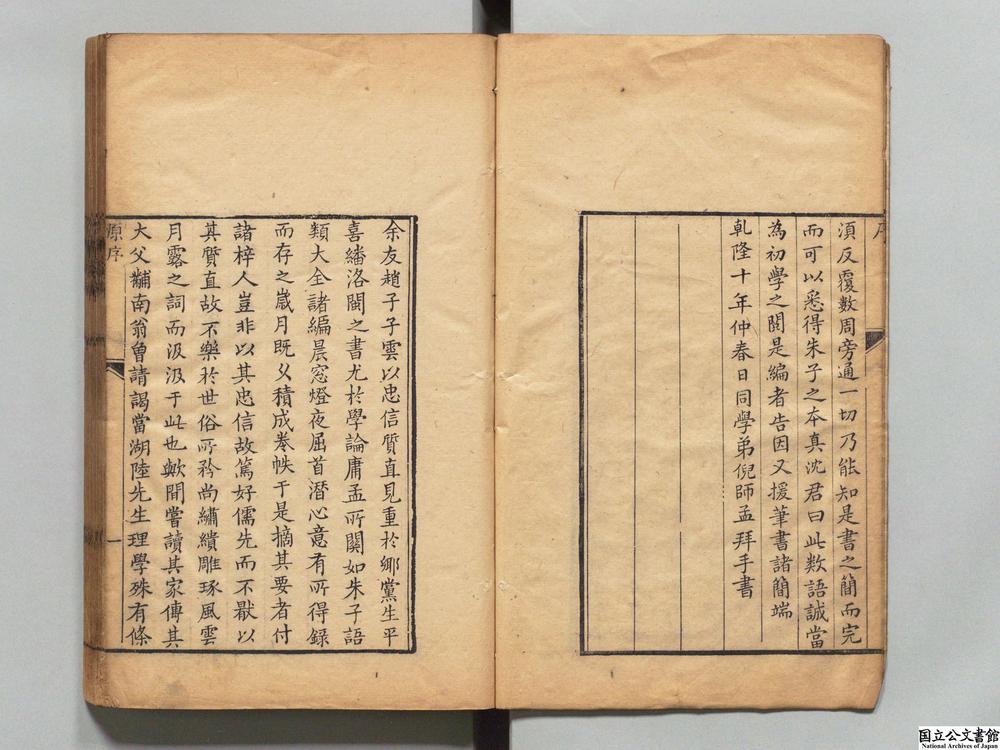 須反覆數周旁通一切乃能知是書之簡而完
而可以悉得朱子之本真沈君曰此数語誠當
為初學之閲是編者告因又援筆書諸簡端
乹隆十年仲春日同學弟倪師孟拜手書
余友趙子子雲以忠信質直見重於鄉黨生平
喜繙洛閩之書尤於學論庸孟所關如朱子語
類大全諸編晨窓燈夜屈首潛心意有所得録
而存之嵗月既乆積成卷帙于是摘其要者付
諸梓人豈非以其忠信故篤好儒先而不厭以
其質直故不樂於世俗所矜尚繡繢雕琢風雲
月露之詞而汲汲于此也歟間嘗讀其家傳其
大父黼南翁曽請謁當湖陸先生理學殊有條
原序
一
国立公文書館
National Archives of Japan